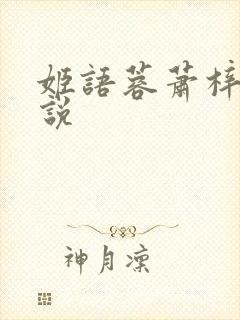 姬語蓉蕭梓
說
神月凜